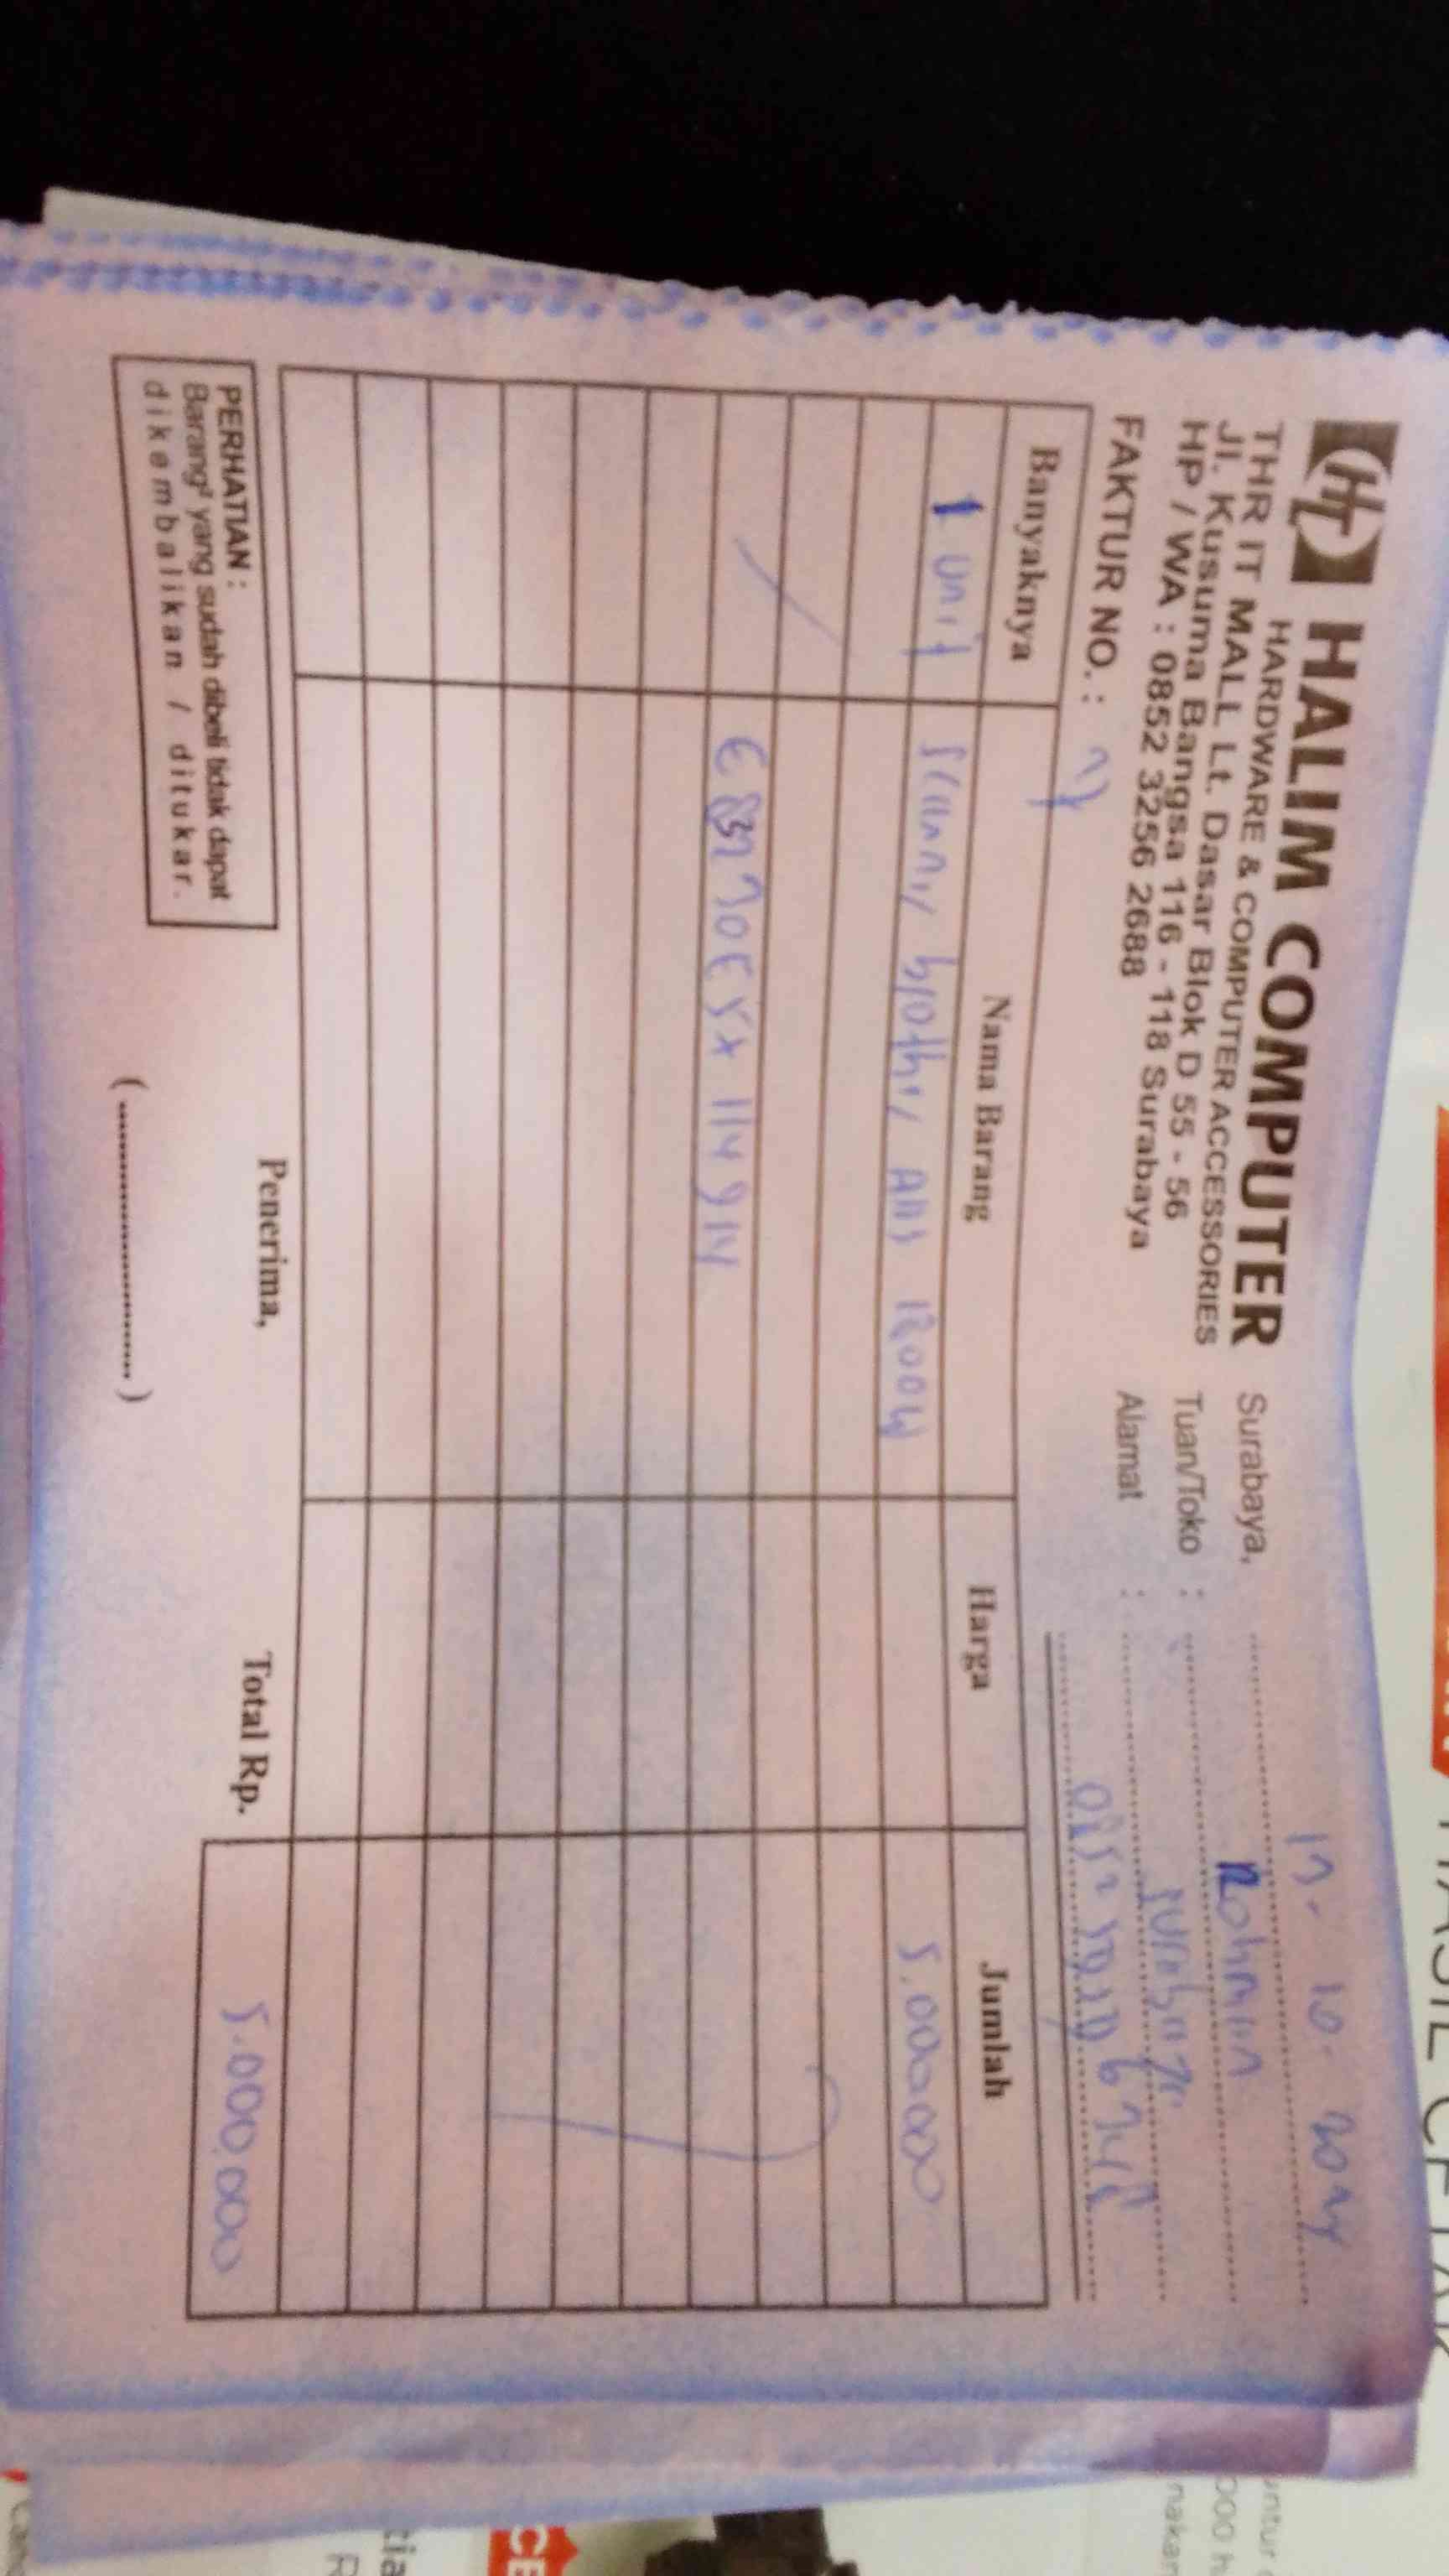 HT HALIM COMPUTER
HARDWARE & COMPUTER ACCESSORIES
THR IT MALL Lt. Dasar Blok D 55 - 56
Jl. Kusuma Bangsa 116 - 118 Surabaya
HP / WA : 0852 3256 2688
FAKTUR NO. :
Surabaya, 17 - 10 - 2024
Tuan/Toko : Rohman
Alamat : Surabaya
Banyaknya Nama Barang Harga Jumlah
1 unit Scanner brother ADS 1200W 5.000.000
PERHATIAN :
Barang² yang sudah dibeli tidak dapat
dikembalikan / ditukar.
Penerima,
(....................)
Total Rp. 5.000.000
HASIL CETAK